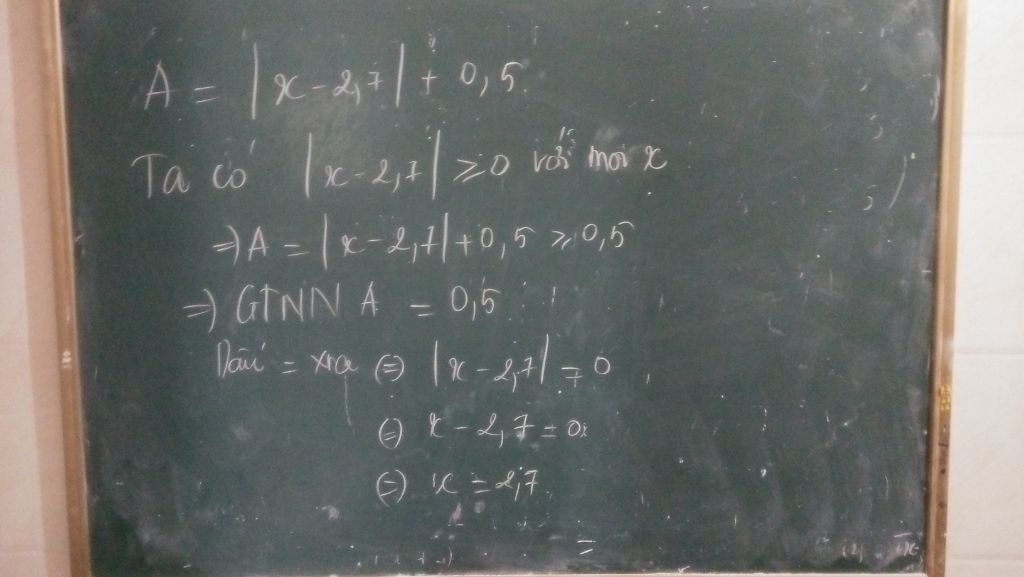 A = |x - 2,7| + 0,5
Ta có |x - 2,7| ≥ 0 với mọi x
=> A = |x - 2,7| + 0,5 ≥ 0,5
=> GTNN A = 0,5
Dấu = xra (=) |x - 2,7| = 0
(=) x - 2,7 = 0
(=) x = 2,7